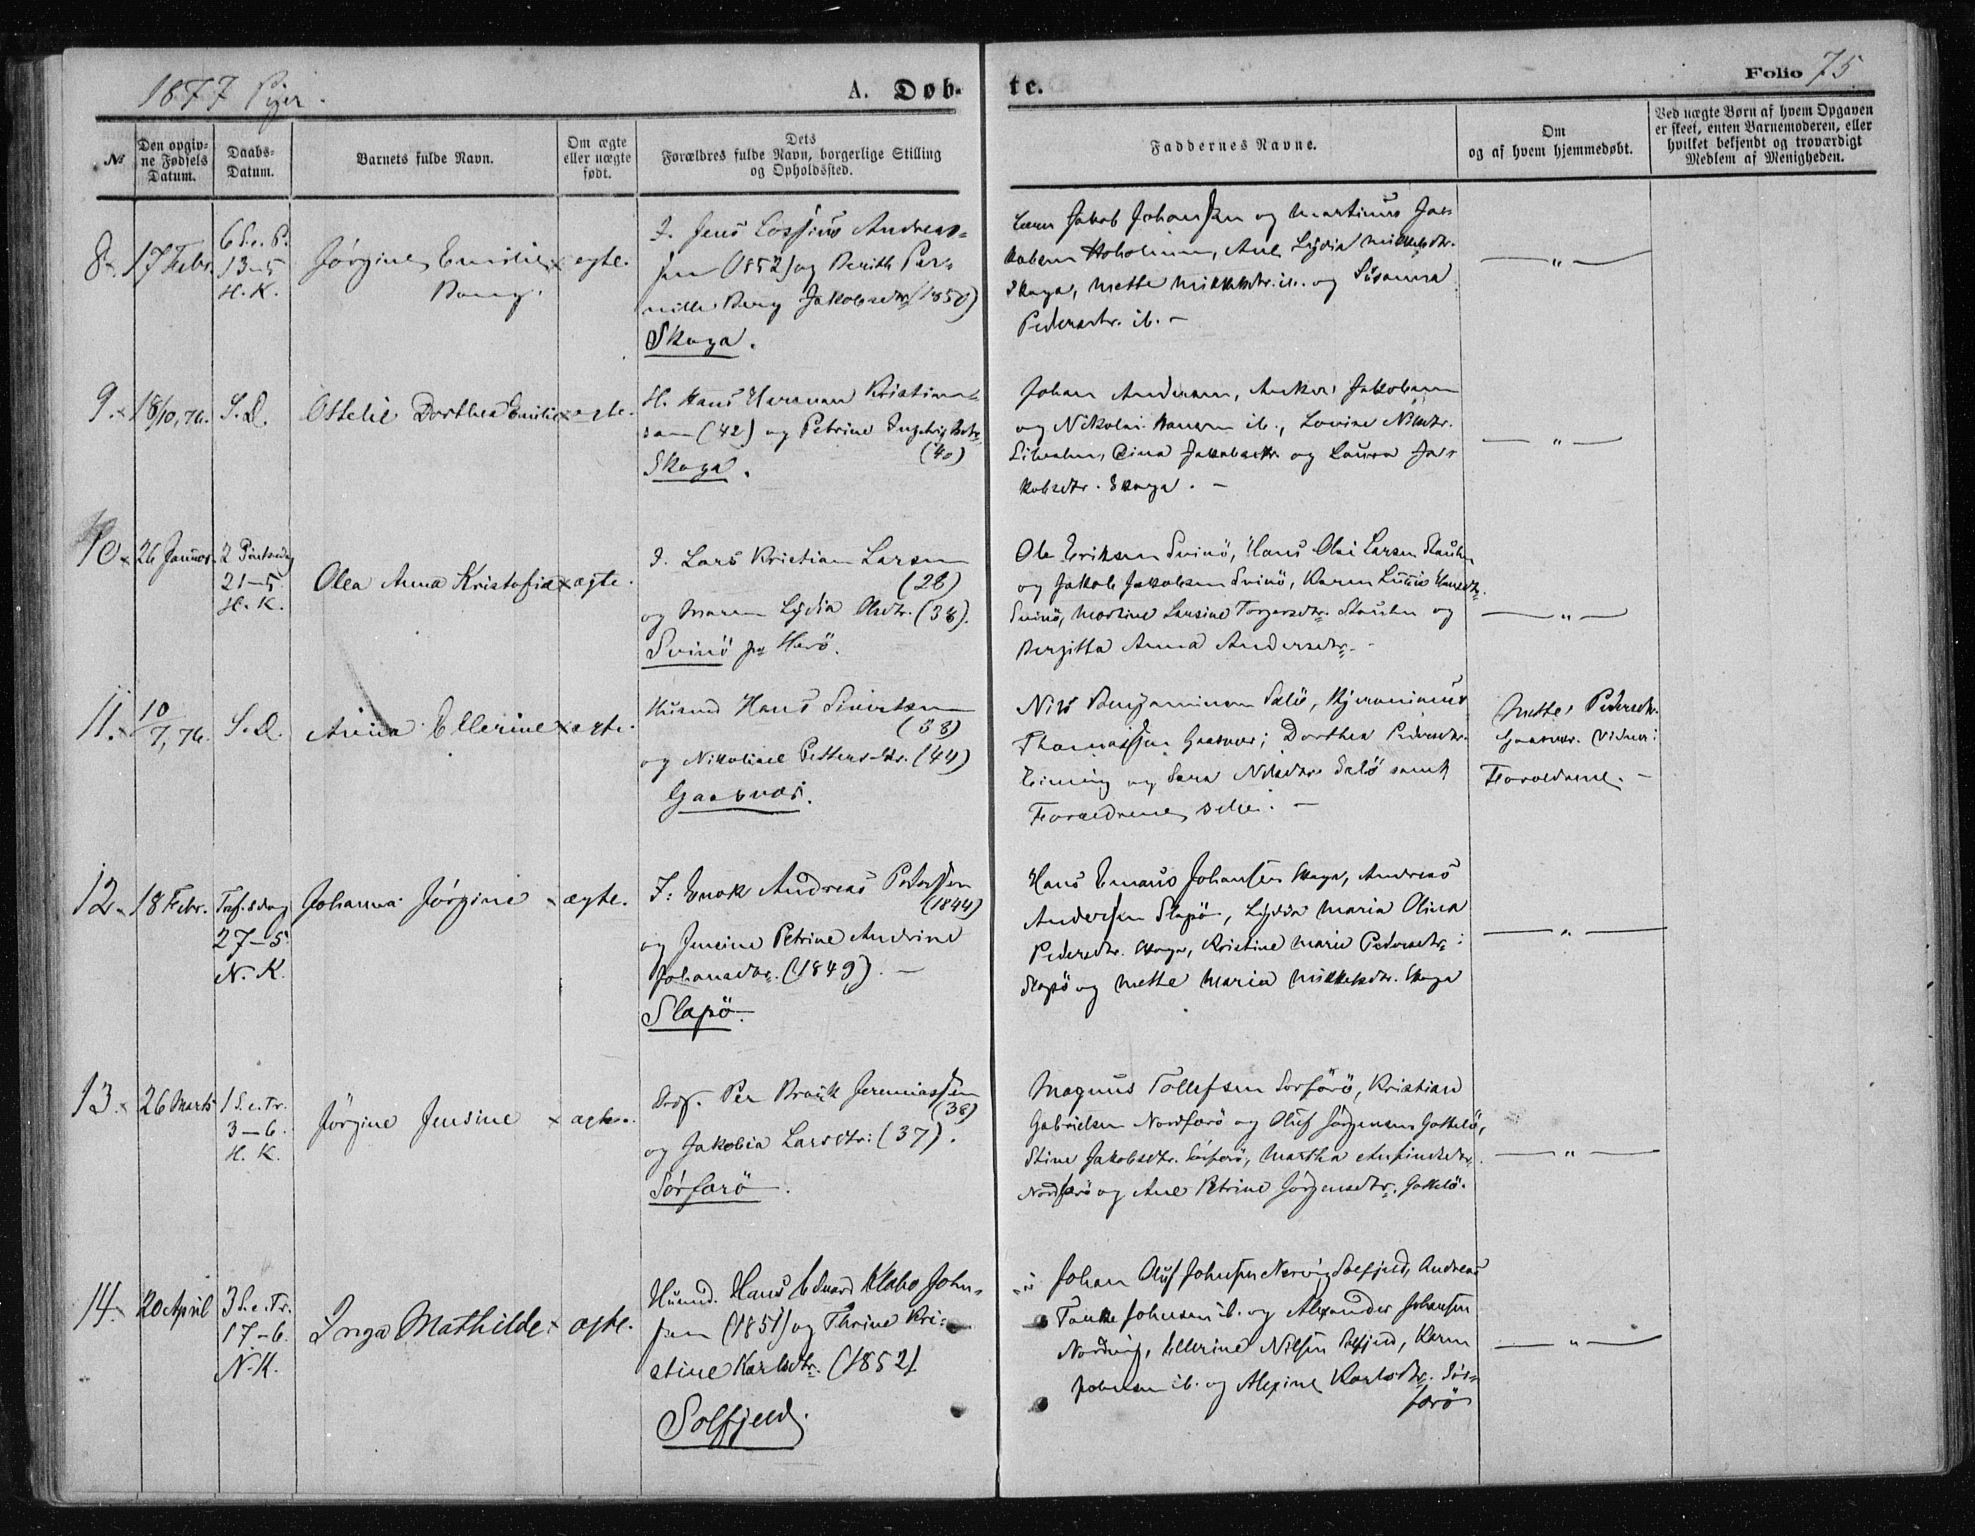 1877 Piger.
A. Døb-
te.
Folio 75
№
Den opgiv-
ne Fødsels
Datum.
Daabs-
Datum.
Barnets fulde Navn.
Om ægte
eller uægte
født.
Dets
Forældres fulde Navn, borgerlige Stilling
og Opholdssted.
Faddernes Navne.
Om
og af hvem hjemmedøbt.
Ved uægte Børn af hvem Opgaven
er skeet, enten Barnemoderen, eller
hvilket bekjendt og troværdigt
Medlem af Menigheden.
8.
17 Febr.
6 S. e. P.
13-5
H. K.
Jørgine Emilie
Berg.
ægte.
I. Jens Lossius Andreas-
sen (1852) og Berith Per-
nille Berg Jakobsdtr (1850)
Skaga.
Jakob Johanssen og Martinus Ja-
kobsen Hoholmen, Ane Lydia Mikkelsdtr.
Skaga, Mette Mikkelsdtr. ib. og Susanna
Pedersdtr. ib. -
- " -
9.
18/10, 76.
S. D.
Ottelie Dorthea Emilie
ægte.
H. Hans Herman Kristian-
sen (42) og Petrine
(40)
Skaga.
Johan Andersen, Anker Jakobsen
og Nikolai Hansen ib., Lovise Nilsdtr.
Jakobsdtr og Laura Ja-
kobsdtr. Skaga. -
- " -
10
26 Januar.
2 Pintsedag
21-5.
H. K.
Olea Anna Kristofia
ægte.
I. Lars Kristian Larsen
(28)
og Maren Lydia Olsdtr. (38).
Svinö pr Herö.
Ole Eriksen Svinö, Hans Olai Larsen Staulen
og Jakob Jakobsen Svinö, Karen Hansdtr.
Svinö, Martine Larsine Torgersdtr. Staulen og
Bergitta Anna Andersdtr. -
- " -
11.
10/7, 76.
S. D.
Anna Ellerine
ægte.
Husmd Hans Sivertsen
(38)
og Nikoline Pettersdtr. (44)
Gaasvær.
Nils Benjaminsen Sälö, Hjeronimus
Thomassen Gaasvær; Dorthea Pedersdtr.
og Sara Nilsdtr Sälö samt
Forældrene selv. -
Mette Pedersdtr.
Gaasvær. Vidner:
Forældrene. -
12.
18 Febr.
27-5.
N. K.
Johanna Jörgine
ægte.
I. Enok Andreas Pederssen
(1844)
og Jensine Petrine Andrine
Johansdtr. (1849). -
Slapö.
Hans Emaus Johansen Skaga, Andreas
Anderssen Slapö, Lydia Maria Olina
Pedersdtr. Skaga, Kristine Marie Pedersdtr.
Slapö og Mette Maria Mikkelsdtr. Skaga
- " -
13.
26 Marts
1 S. e. Tr.
3-6.
H. K.
Jörgine Jensine
ægte.
Per Brask Jeremiassen
(38)
og Jakobia Larsdtr. (37).
Sörfærö.
Magnus Tollefsen Sörfärö, Kristian
Gabrielsen Nordfærö og Oluf Jörgensen Gattelö,
Stine Jakobsdtr. Sörfärö, Martha Anfindsdtr.
Nordfärö og Ane Petrine Jörgensdtr. Gattelö.
- " -
14.
20 April
3 S. e. Tr.
17-6.
N. K.
Inga Mathilde
ægte.
Husmd. Hans Edvard Klabo John-
sen (1851) og Thrine Kri-
stine Karlsdtr. (1852)
Solfjeld.
Johan Oluf Johnsen Solfjeld, Andreas
Tanke Johnsen ib. og Alexander Johansen
Nordvig, Ellerine Nilsen Solfjeld, Karen
Johnsen ib. og Alexine Karlsdtr. Sör-
færö
- " -